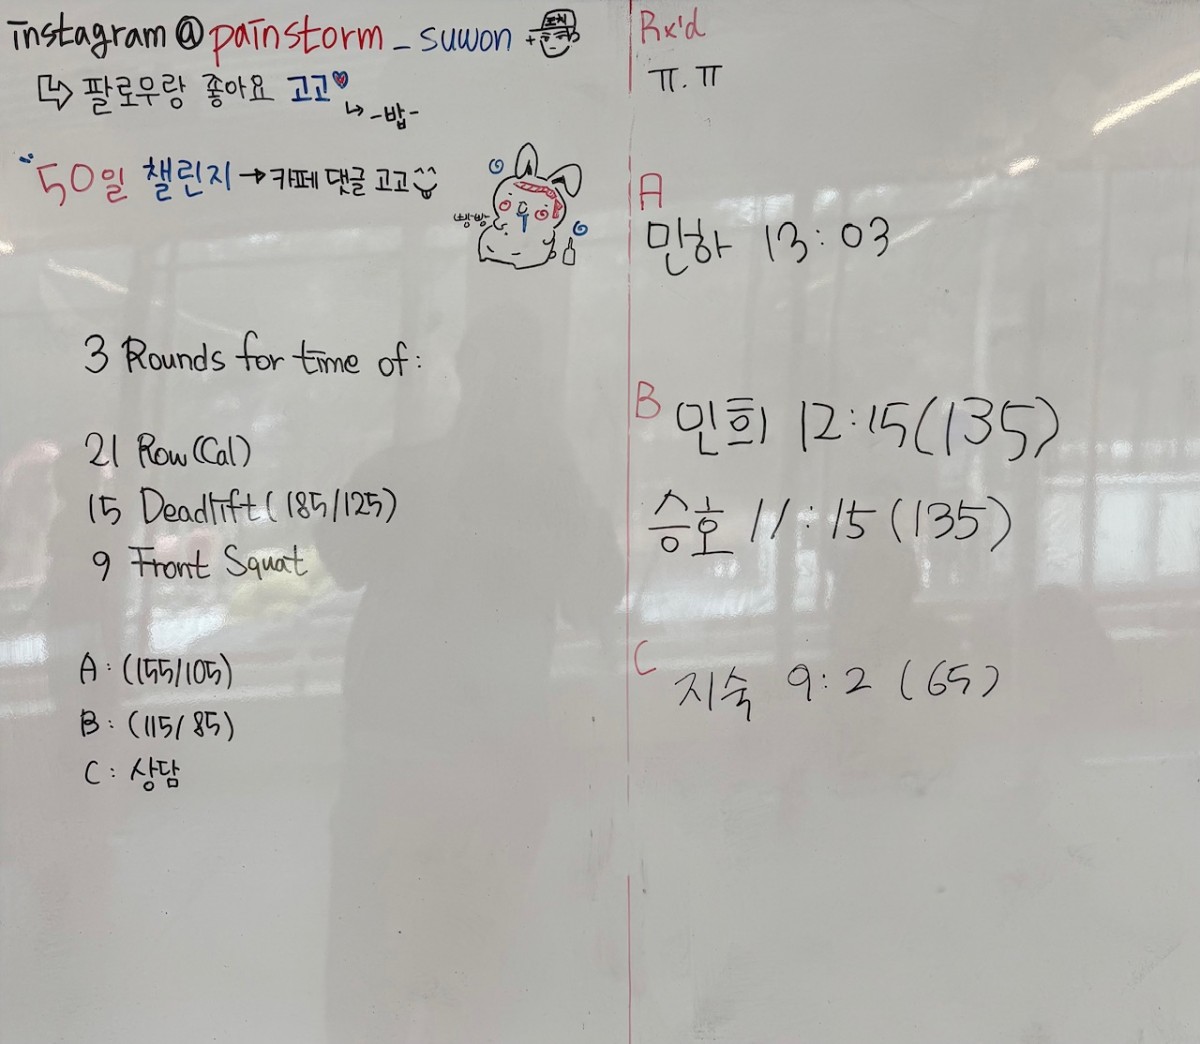 instagram@painstorm_suwon +
코치
팔로우랑 좋아요 고고
-밥-
50일 챌린지→카페 댓글 고고^^
빵빵
3 Rounds for time of:
21 Row(Cal)
15 Deadlift(185/125)
9 Front Squat
A: (155/105)
B: (115/85)
C: 상담
Rx'd
ㅠ.ㅠ
A
민하 13:03
B
민희 12:15(135)
승호 11:15(135)
C
지숙 9:2 (65)